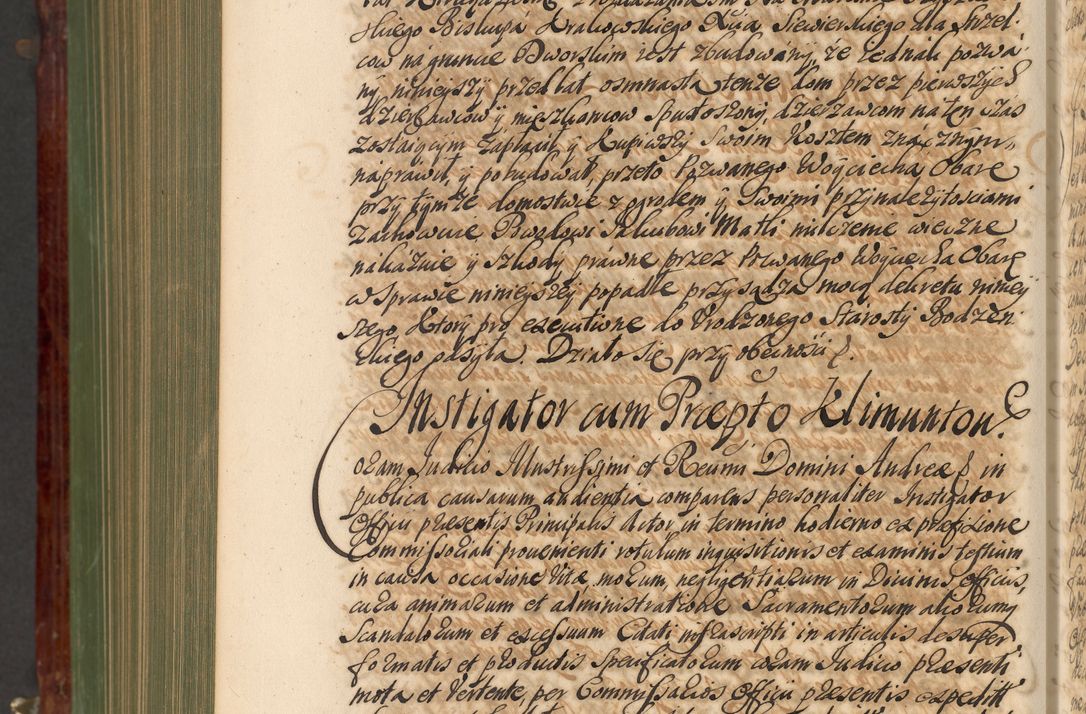 skiego Biskupa Krakowskiego Xcia Siewierskiego dla Strzel-
cow na gruncie Dworskim iest zbudowany, że iednak pozwa-
ny, ninieyszy przed lat osmnasta tenże dom przez pierwszych
dzierżawcow y mieszkancow spustoszony, dzierżawcom na ten czas
zostaiącym zapłacił, y kupiwszy swoim kosztem znacznym
naprawił, y pobudował, przeto Pozwanego Woyciecha Obarę
przy tymże domostwie z ogrodem y swoimi przynależytosciami
zachowuie, Powodowi Jakubowi Matli milczenie wieczne
nakazuie y szkody prawne przez Pozwanego Woyciecha Obarę
w sprawie ninieyszey popadłe przysądza mocą dekretu niniey-
szego, ktory pro executione do Urodzonego Starosty Bodzen-
skiego odsyła. Działo się przy obecnosci &.
Instigator cum Præpto Klimunton.
oram Judicio Illustrissimi et Reverndi Domini Andreæ & in
publica causarum audientia comparens personaliter Instigator
Officii præsentis Principalis Actor, in termino hodierno ex præfixione
Commissoriali provenienti rotulum inquisitionis et examinis testium
in causa occasione vitæ, morum, negligentiarum in Divinis officiis,
cura animarum et administratione Sacramentorum aliorumq
Scandalorum et excessuum Citati infrascripti in articulis desuper
formatis et productis specificatorum coram Judicio præsenti
mota et vertente, per Commissarios Officii præsentis expedit